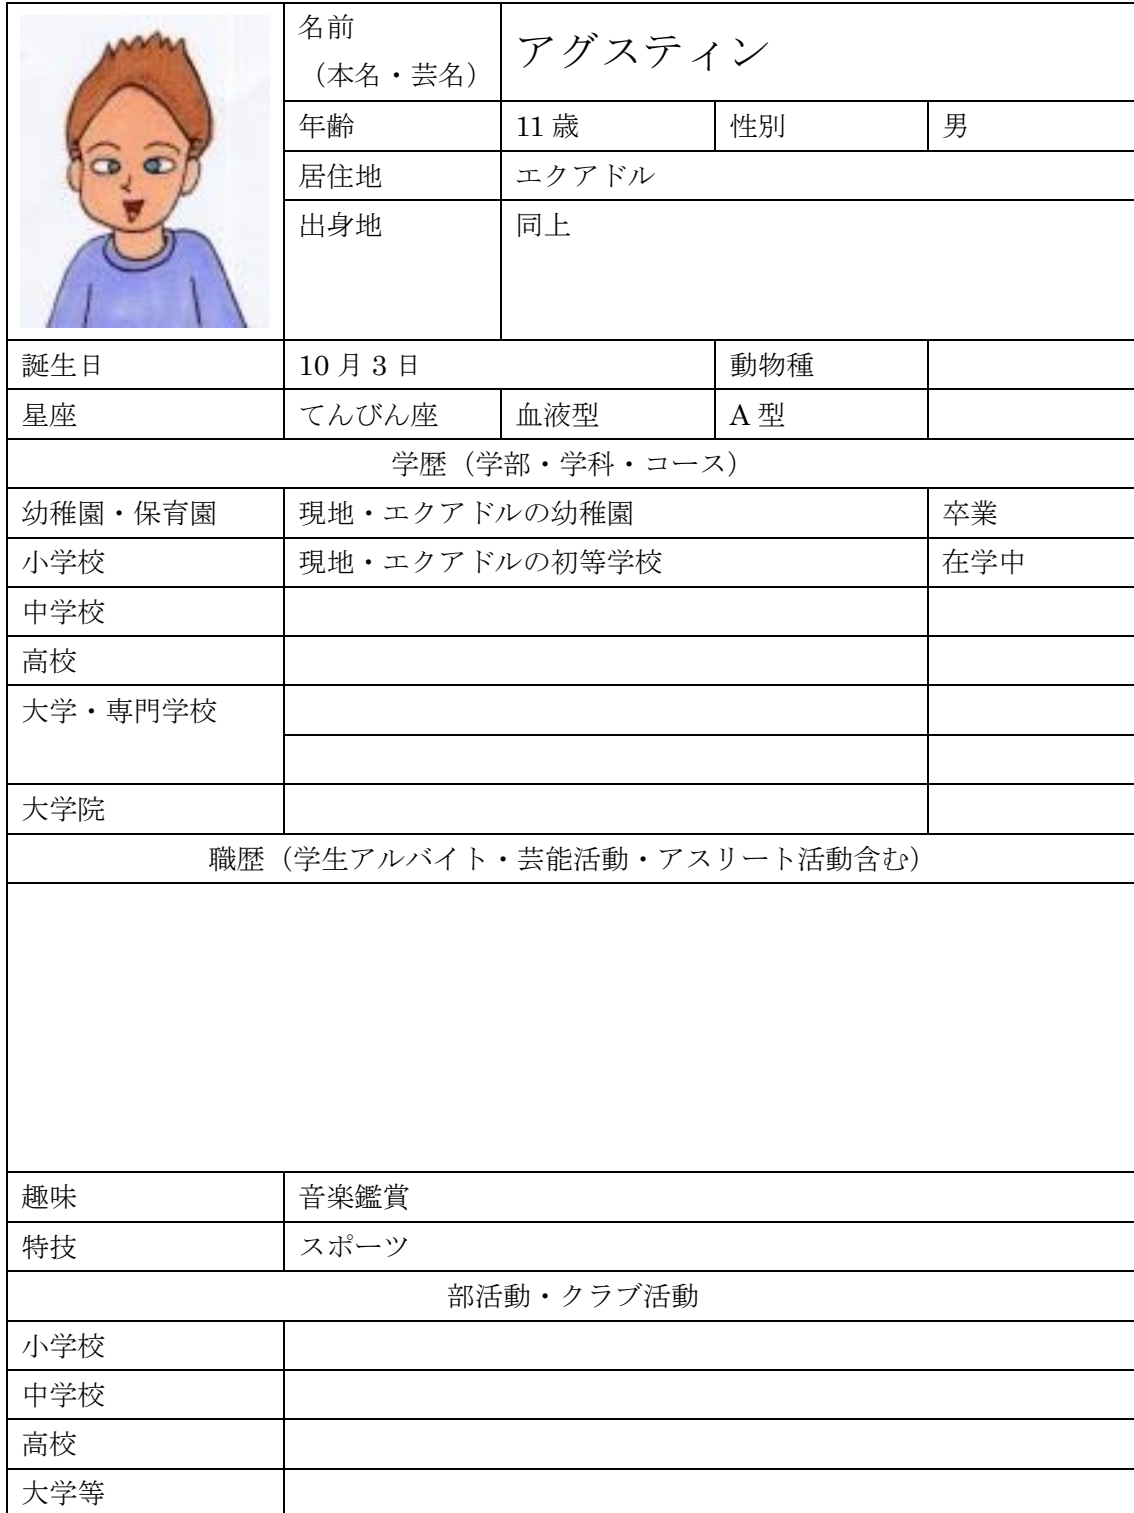 名前
（本名・芸名）
アグスティン
年齢 11 歳 性別 男
居住地 エクアドル
出身地 同上
誕生日 10 月 3 日 動物種
星座 てんびん座 血液型 A 型
学歴（学部・学科・コース）
幼稚園・保育園 現地・エクアドルの幼稚園 卒業
小学校 現地・エクアドルの初等学校 在学中
中学校
高校
大学・専門学校
大学院
職歴（学生アルバイト・芸能活動・アスリート活動含む）
趣味 音楽鑑賞
特技 スポーツ
部活動・クラブ活動
小学校
中学校
高校
大学等